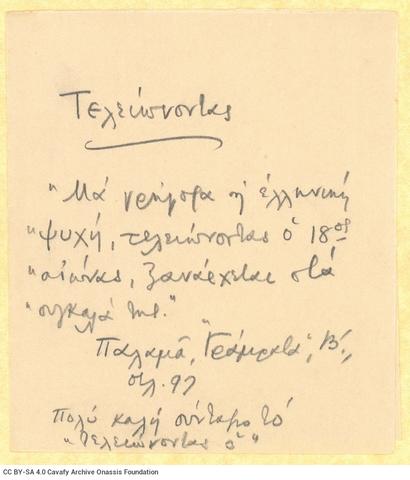 Τελειώνοντας
"Μά γρήγορα η ελληνική
"ψυχή, τελειώνοντας ο 18ος
"αιώνας, ξανάρχεται στά
"συγκαλά της."
Παλαμά, "Γράμματα", Β',
σελ. 97
Πολύ καλή σύνταξις τό
"τελειώνοντας ο"
CC BY-SA 4.0 Cavafy Archive Onassis Foundation